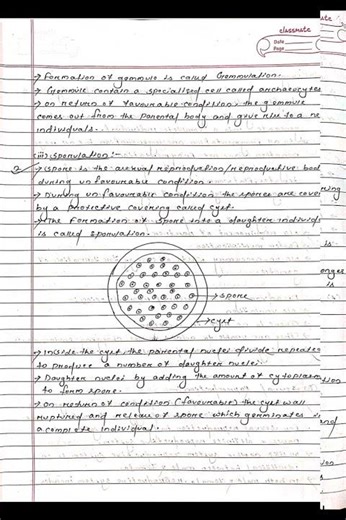 classmate
Date
Page
→ Formation of gemmule is called Gemmulation.
→ Gemmule contain a specialised cell called archaeocytes
→ on return of favourable condition, the gemmule
comes out from the parental body and give rise to a ne
individuals.
iii) Sporulation:-
→ Spore is the asexual reproduction/reproductive bod
during unfavourable condition.
→ During unfavourable condition the spores are cover
by a protective covering called cyst.
→ The formation of spore into a daughter individu
is called sporulation.
→ spore
→ cyst
→ Inside the cyst the parental nuclei divide repeate
to produce a number of daughter nuclei.
→ Daughter nuclei by adding the amount of cytoplasm
to form spore.
→ On return of condition (favourable) the cyst wall
ruptured and release of spore which germinates
a complete individual.